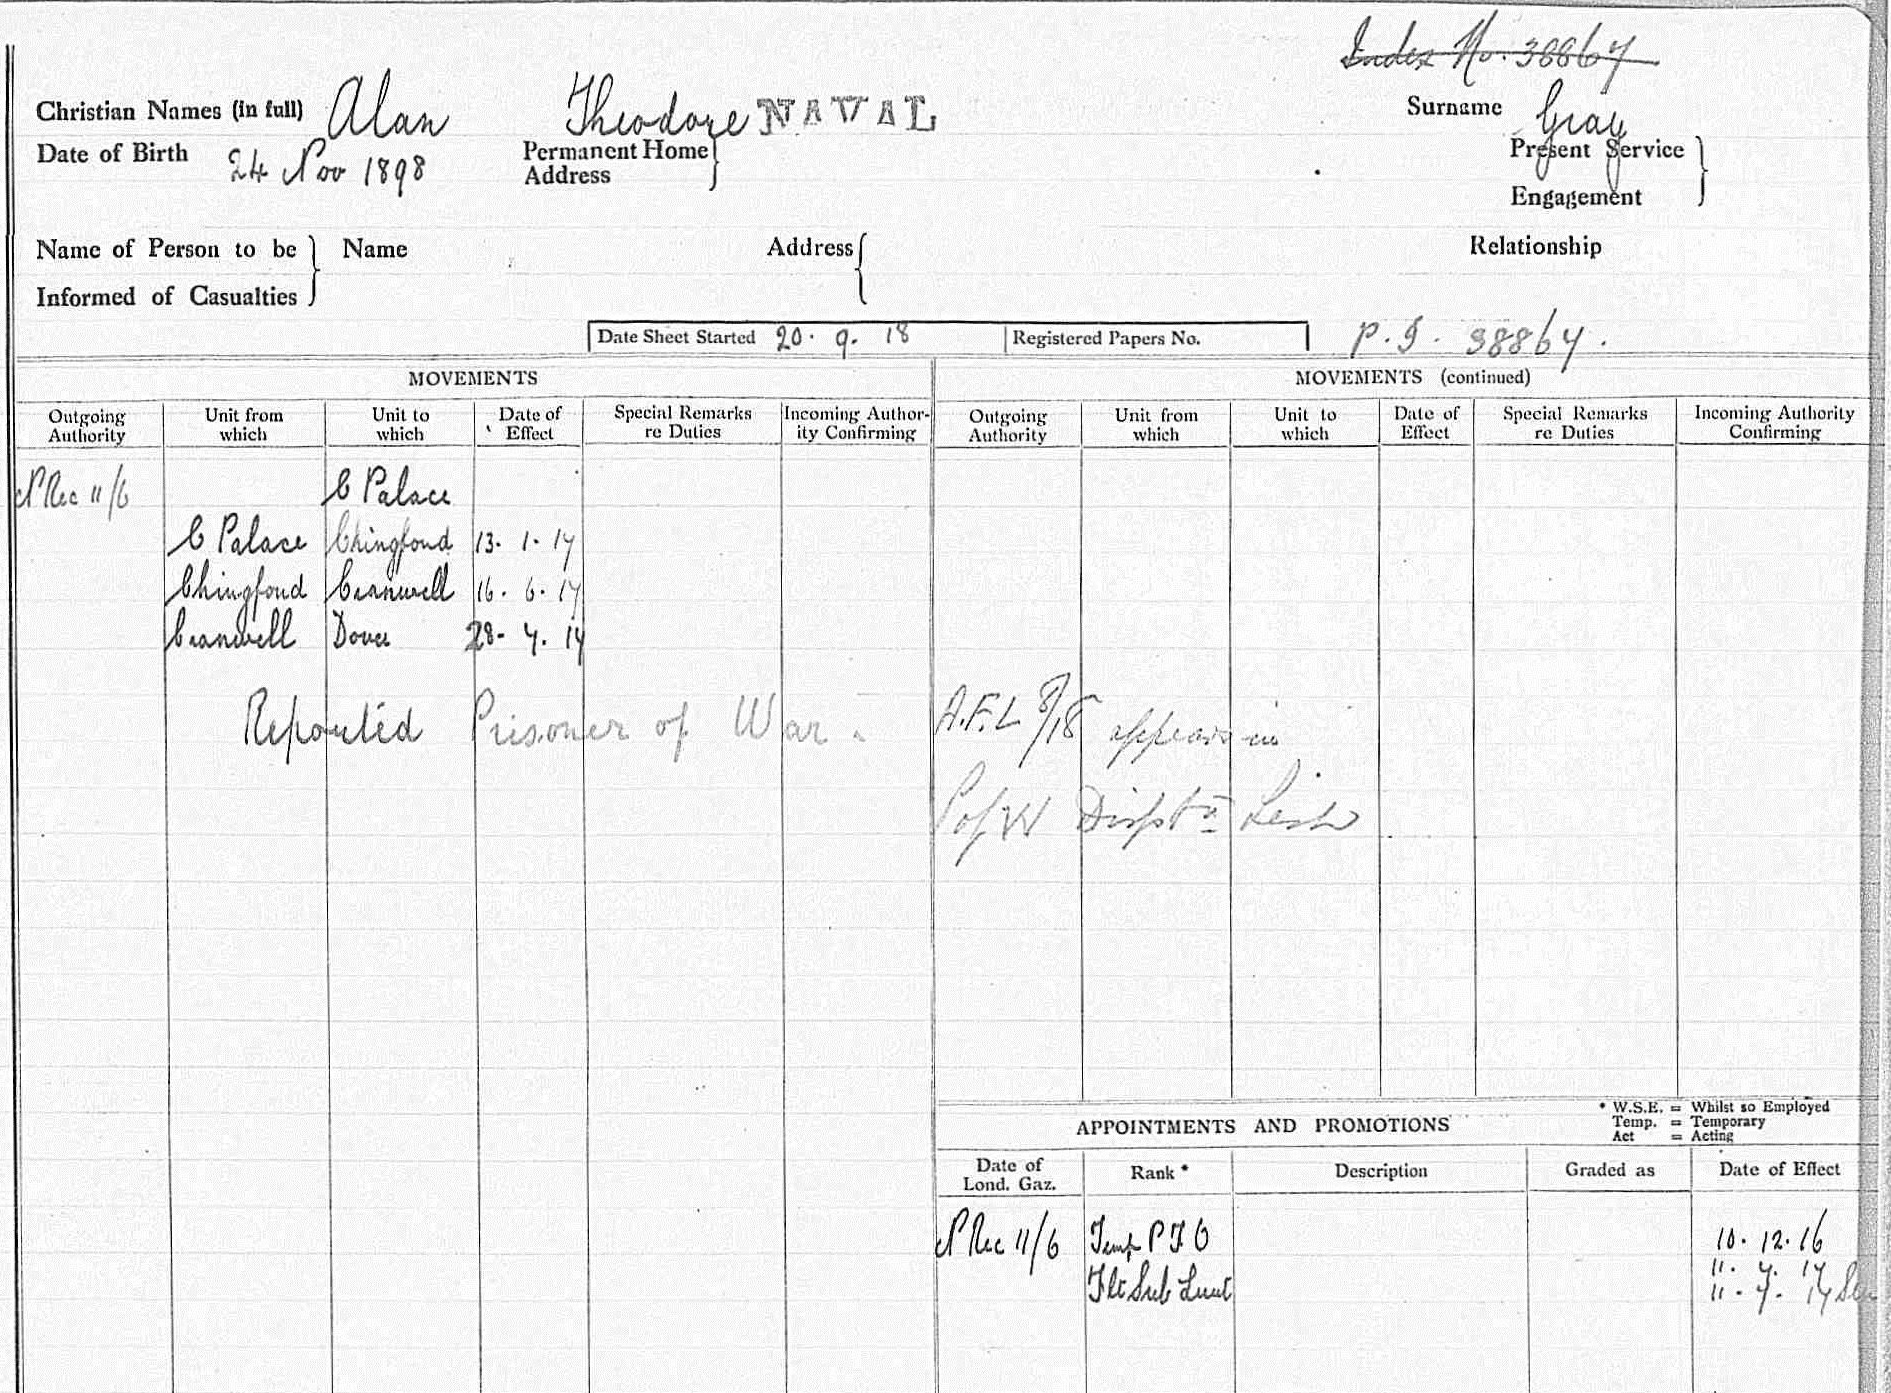 Index No. 38867
Christian Names (in full) Alan Theodore NAVAL Surname Gray
Date of Birth 24 Nov 1898 Permanent Home Address Present Service Engagement
Name of Person to be Informed of Casualties Name Address Relationship
Date Sheet Started 20. 9. 18 Registered Papers No. P. I. 38867.
MOVEMENTS MOVEMENTS (continued)
Outgoing Authority Unit from which Unit to which Date of Effect Special Remarks re Duties Incoming Author-ity Confirming Outgoing Authority Unit from which Unit to which Date of Effect Special Remarks re Duties Incoming Authority Confirming
N Rec 11/6 C Palace
C Palace Chingford 13. 1. 17
Chingford Cranwell 16. 6. 17
Cranwell Dover 28. 7. 17
Reported Prisoner of War. A.F.L 8/18 appears in
P of W List
APPOINTMENTS AND PROMOTIONS
* W.S.E. = Whilst so Employed
Temp. = Temporary
Act = Acting
Date of Lond. Gaz. Rank * Description Graded as Date of Effect
N Rec 11/6 Temp P F O 10. 12. 16
11. 7. 17
Flt Sub Lieut 11. 7. 17 Sen